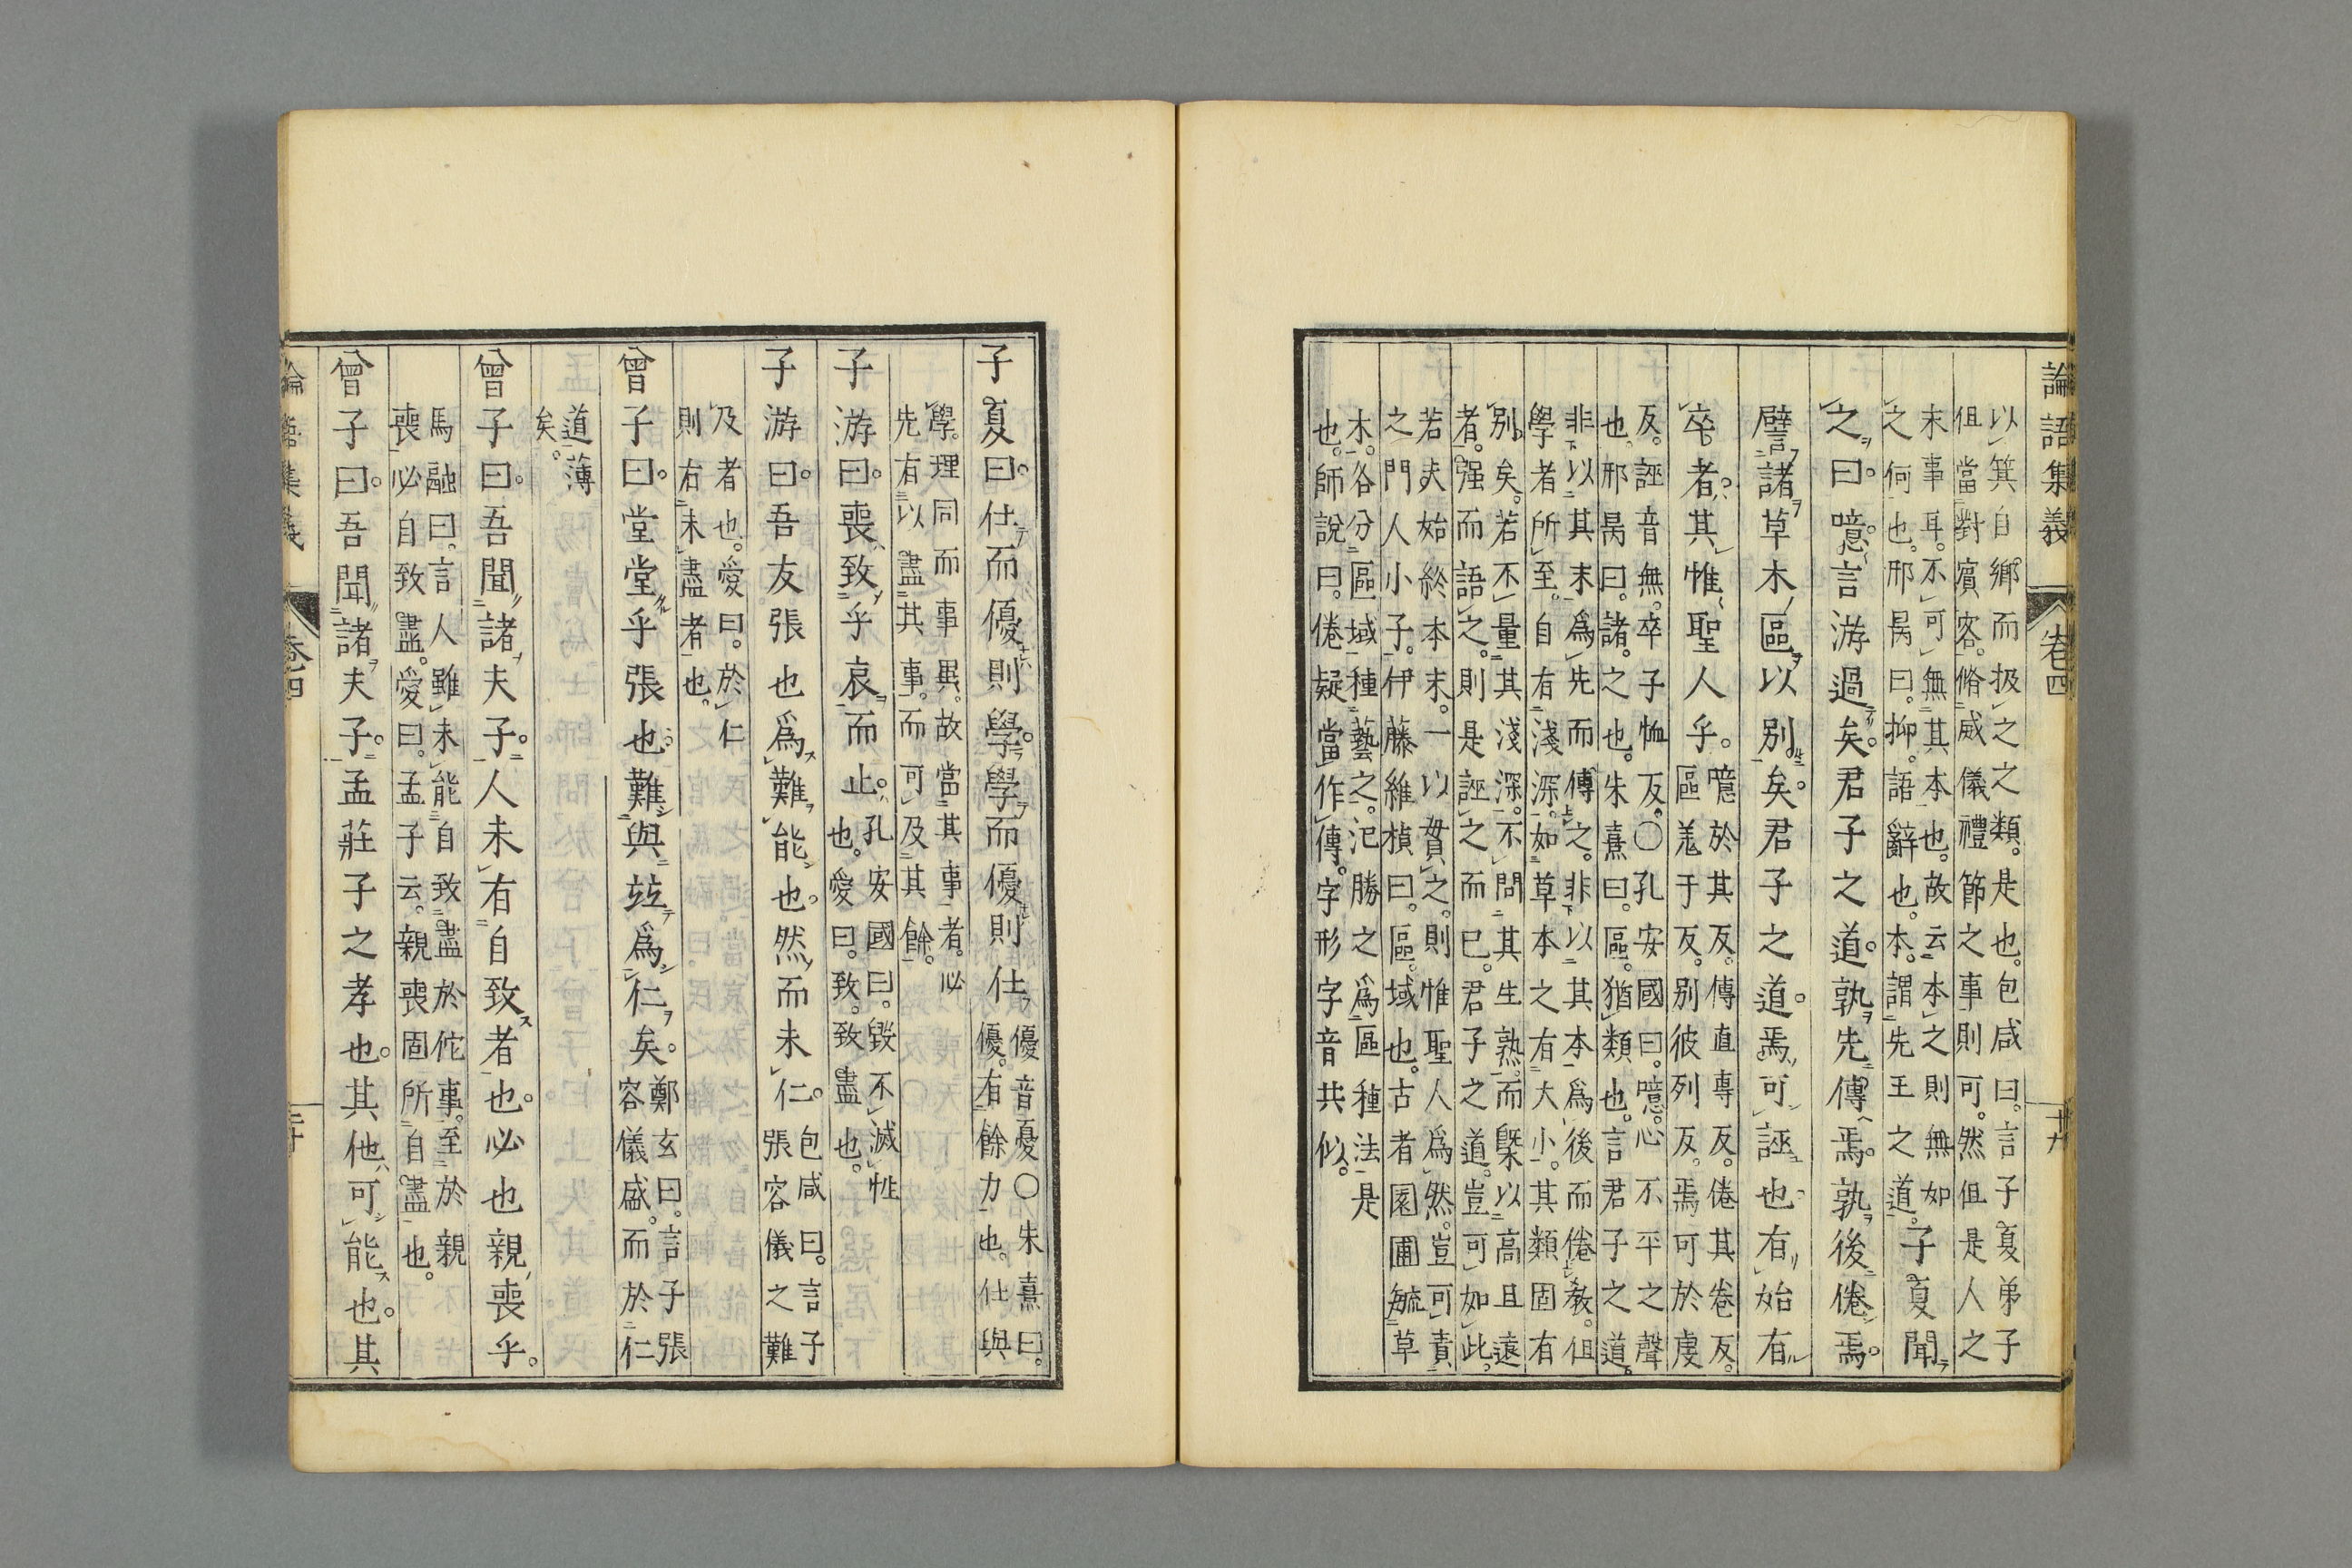 論語集義 卷四 廿九
以箕自鄉而扱之之類。是也。包咸曰。言子夏弟子
但當對賓客。脩威儀禮節之事則可。然但是人之
末事耳。不可無其本也。故云本之則無如
之何也。邢昺曰。抑。語辭也。本。謂先王之道。子夏聞
之。曰。噫。言游過矣。君子之道。孰先傳焉。孰後倦焉。
譬諸草木區以別矣。君子之道。焉可誣也。有始有
卒。者。其惟聖人乎。
噫於其反。傳直專反。倦其卷反。
區羌于反。別彼列反。焉可於虔
反。誣音無。卒子恤反。○孔安國曰。噫。心不平之聲
也。邢昺曰。諸。之也。朱熹曰。區。猶類也。言君子之道。
非以其末爲先而傳之。非以其本爲後而倦教。但
學者所至。自有淺深。如草本之有大小。其類固有
別。矣。若不量其淺深。不問其生熟。而槩以高且遠
者。强而語之。則是誣之而已。君子之道。豈可如此。
若夫始終本末。一以貫之。則惟聖人爲然。豈可責
之門人小子。伊藤維楨曰。區。域也。古者園圃毓草
木。各分區域種藝之。氾勝之爲區種法是
也。師說曰。倦疑當作傳。字形字音共似。
子夏曰。仕而優則學。學而優則仕
優音憂○朱熹曰。
優。有餘力也。仕與
學。理同而事異。故當其事者。必
先有以盡其事。而可及其餘。
子游曰。喪致乎哀而止。
孔安國曰。毀不滅性
也。愛曰。致。致盡也。
子游曰。吾友張也爲難能也。然而未仁。
包咸曰。言子
張容儀之難
及者也。愛曰。於仁
則有未盡者也。
曾子曰。堂堂乎張也。難與竝爲仁矣。
鄭玄曰。言子張
容儀盛。而於仁
道薄
矣。
曾子曰。吾聞諸夫子。人未有自致者也。必也親喪乎。
馬融曰。言人雖未能自致盡於佗事。至於親
喪必自致盡。愛曰。孟子云。親喪固所自盡也。
曾子曰。吾聞諸夫子。孟莊子之孝也。其他可能也。其
論語集義 卷四